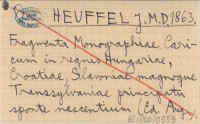 HEUFFEL J. M.D. 1863.
Fragmenta Monographiae Cari-
cum in regnis Hungariae,
Croatiae, Slavoniae magnoque
Transsylvaniae principatu
sponte nascentium (Ed. Aug.